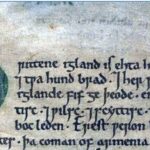 rittene igland is ehta h
⁊ twa hund brad. ⁊ her
iglande fif ge þeode. en
tisc. ⁊ wilsc. ⁊ scyttisc.
boc leden. Erest weron
tes. þa coman of armenia